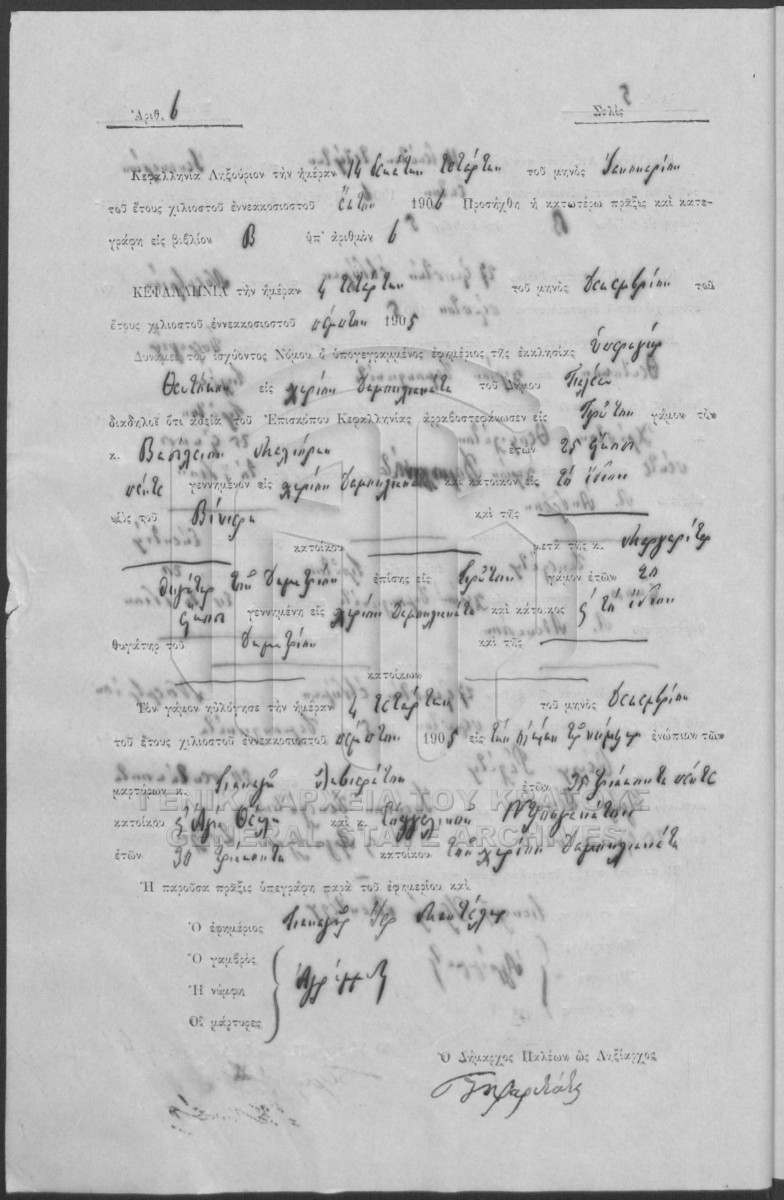 Ἀριθ. 6 Σελὶς 5
Κεφαλληνία Ληξούριον τὴν ἡμέραν 14 δεκάτην τετάρτην τοῦ μηνὸς Ἰανουαρίου
τοῦ ἔτους χιλιοστοῦ ἐννεακοσιοστοῦ ἕκτου 1906 Προσήχθη ἡ κατωτέρω πρᾶξις καὶ κατε-
γράφη εἰς βιβλίον Β ὑπ' ἀριθμὸν 6
ΚΕΦΑΛΛΗΝΙΑ τὴν ἡμέραν 4 τετάρτην τοῦ μηνὸς Δεκεμβρίου τοῦ
ἔτους χιλιοστοῦ ἐννεακοσιοστοῦ πέμπτου 1905
Δυνάμει τοῦ ἰσχύοντος Νόμου ὁ ὑπογεγραμμένος ἐφημέριος τῆς ἐκκλησίας Ὑπεραγίας
Θεοτόκου εἰς χωρίον Δαμουλιανάτα τοῦ Δήμου Παλέων
διαδηλοῖ ὅτι ἀδείᾳ τοῦ Ἐπισκόπου Κεφαλληνίας ἀρραβοστεφάνωσεν εἰς Πρῶτον γάμον τὸν
κ. Βασίλειον ἐτῶν 25 εἴκοσι
πέντε γεννημένον εἰς χωρίον Δαμουλιανάτα καὶ κάτοικον εἰς τὸ ἴδιον
υἱὸς τοῦ καὶ τῆς
κατοίκου μετὰ τῆς κ. Μαργαρίτας
θυγάτηρ τοῦ Δημητρίου ἐπίσης εἰς πρῶτον γάμον ἐτῶν 20
εἴκοσι γεννημένη εἰς χωρίον Δαμουλιανάτα καὶ κάτοικος εἰς τὸ ἴδιον
θυγάτηρ τοῦ Δημητρίου καὶ τῆς
κατοίκων
Τὸν γάμον ηὐλόγησε τὴν ἡμέραν 4 τετάρτην τοῦ μηνὸς Δεκεμβρίου
τοῦ ἔτους χιλιοστοῦ ἐννεακοσιοστοῦ πέμπτου 1905 εἰς τὴν οἰκίαν τοῦ νυμφίου ἐνώπιον τῶν
μαρτύρων κ. ἐτῶν 35 τριάκοντα πέντε
κατοίκου εἰς Ἁγία Θέκλη καὶ κ.
ἐτῶν 30 τριάκοντα κατοίκου τοῦ χωρίου Δαμουλιανάτα
Ἡ παροῦσα πρᾶξις ὑπεγράφη παρὰ τοῦ ἐφημερίου καὶ
Ὁ ἐφημέριος
Ὁ γαμβρὸς
Ἡ νύμφη
Οἱ μάρτυρες
Ὁ Δήμαρχος Παλέων ὡς Ληξίαρχος
ΓΕΝΙΚΑ ΑΡΧΕΙΑ ΤΟΥ ΚΡΑΤΟΥΣ
GENERAL STATE ARCHIVES